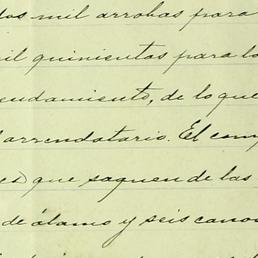 dos mil arrobas para
mil quinientas para lo
endamiento, de lo que
arrendatario. El com
es que saquen de las
de álamo y seis cano